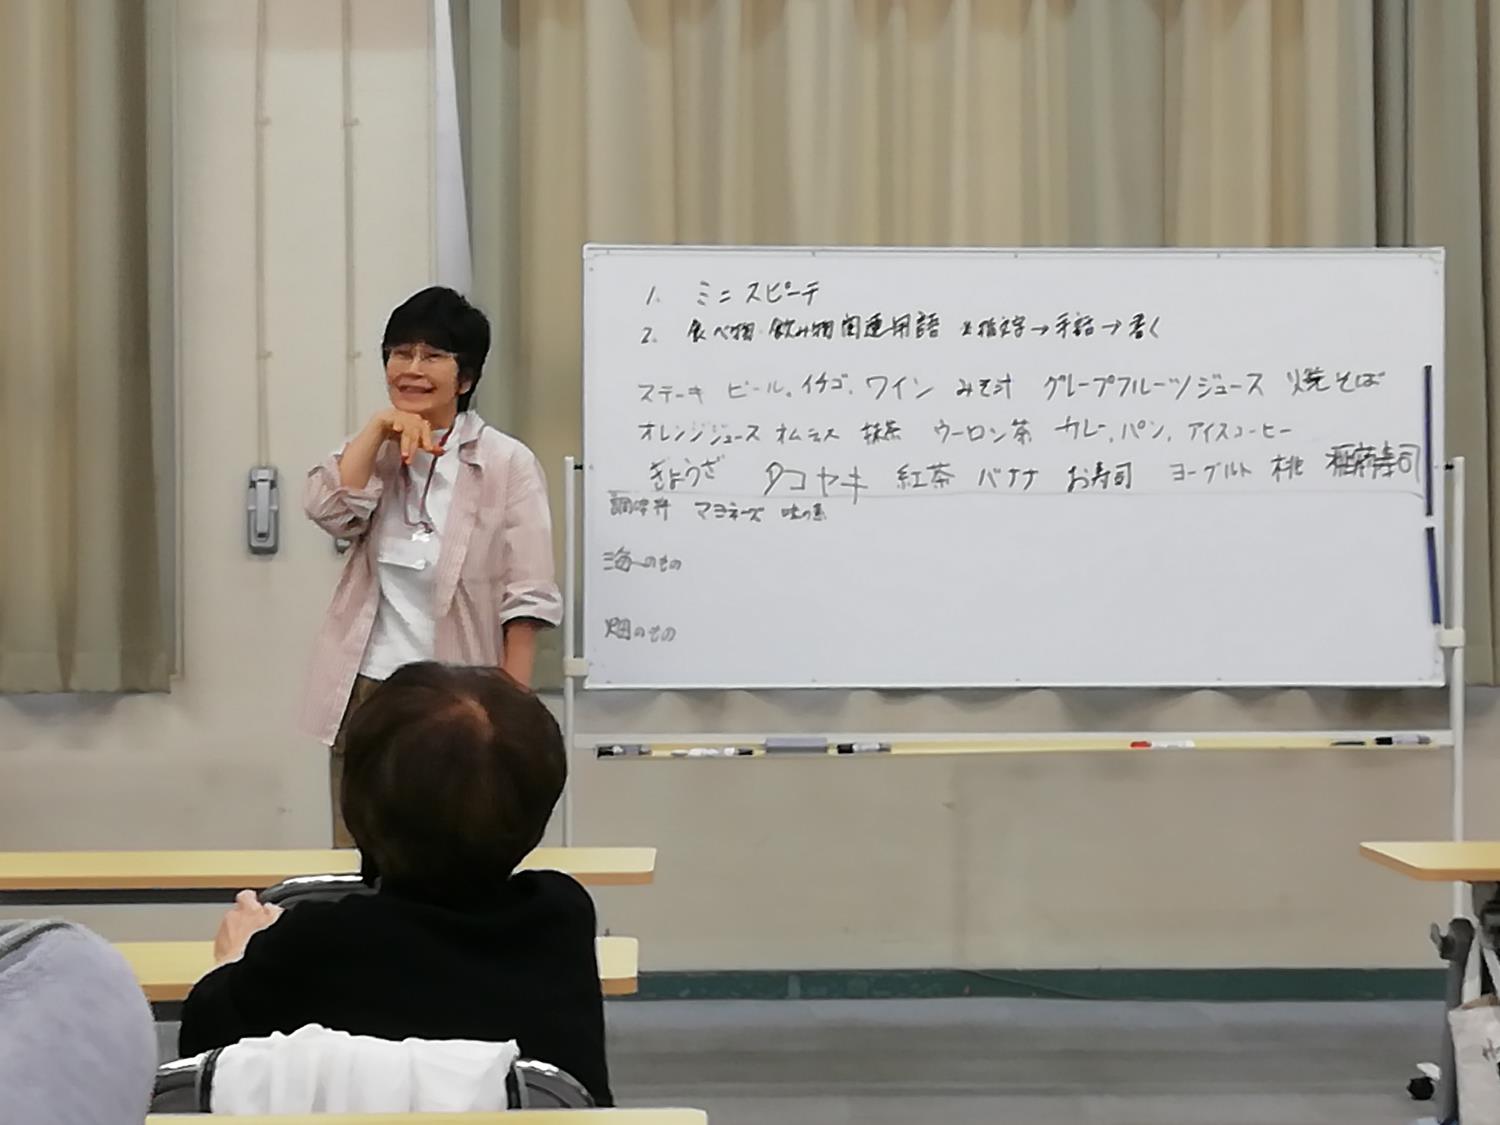 1. ミニスピーチ
2. 食べ物 飲み物関連用語 ※指文字→手話→書く
ステーキ ビール。イチゴ。ワイン みそ汁 グレープフルーツジュース 焼そば
オレンジジュース オムライス 抹茶 ウーロン茶 カレー。パン。アイスコーヒー
ぎょうざ タコヤキ 紅茶 バナナ お寿司 ヨーグルト 桃 稲荷寿司
調味料 マヨネーズ 味の素
海のもの
畑のもの